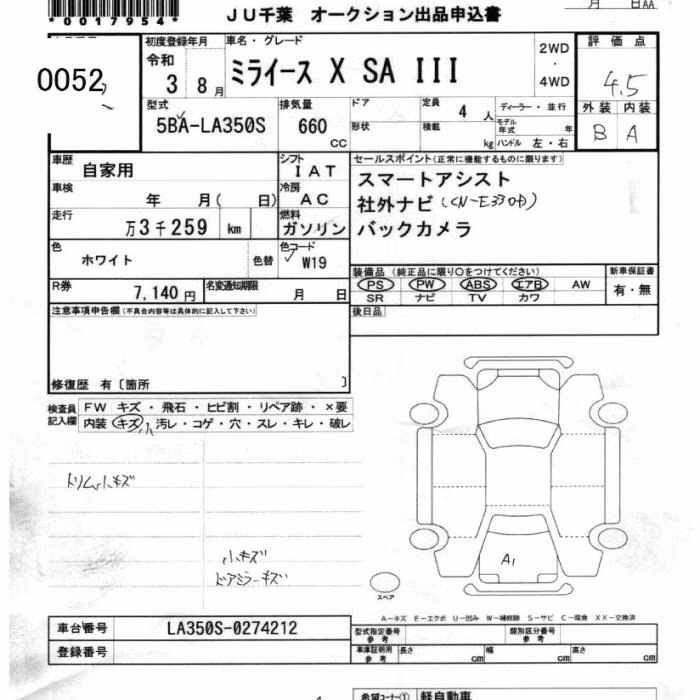 *0017954*
JU千葉 オークション出品申込書
月 日AA
0052
初度登録年月 車名・グレード
令和 3 8月 ミライース X SA III
2WD・4WD
評価点
4.5
外装 内装
B A
型式 排気量 ドア 定員 4 人 ディーラー・並行
5BA-LA350S 660 CC 形状 積載 kg
モデル年式 年
ハンドル 左・右
車歴 自家用
シフト IAT
セールスポイント(正常に機能するものに限ります)
スマートアシスト
車検 年 月( 日)
冷房 AC
社外ナビ(CN-E330D)
走行 万3千259 km
燃料 ガソリン
バックカメラ
色 ホワイト 色替
色コード W19
装備品(純正品に限り○をつけてください)
新車保証書
PS PW ABS エアB AW
有・無
SR ナビ TV カワ
R券 7,140円
名変通知期限 月 日
後日品
注意事項申告欄(不具合内容等は具体的に記入して下さい)
修復歴 有〔箇所 〕
検査員記入欄
FW キズ・飛石・ヒビ割・リペア跡・×要
内装 キズ小・汚レ・コゲ・穴・スレ・キレ・破レ
トリム小キズ
小キズ
ドアミラーキズ
A1
スペア
A-キズ E-エクボ U-凹み W-補修跡 S-サビ C-腐食 XX-交換済
車台番号 LA350S-0274212
型式指定番号 参考 類別区分番号 参考
登録番号
車庫証明用 参考 長さ cm 幅 cm 高さ cm
希望コーナー① 軽自動車